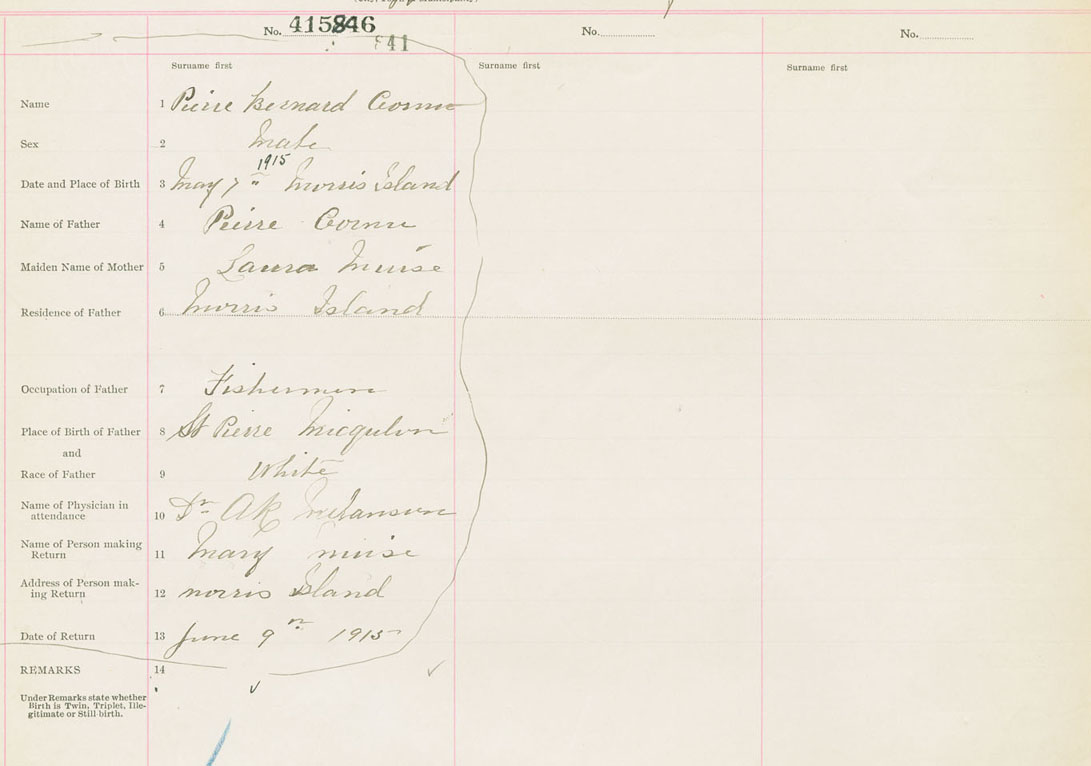 No. 415846 No. No.
841
Surname first Surname first Surname first
Name 1 Pierre Bernard Cornu
Sex 2 Male
1915
Date and Place of Birth 3 May 7th Morris Island
Name of Father 4 Pierre Cornu
Maiden Name of Mother 5 Laura Muise
Residence of Father 6 Morris Island
Occupation of Father 7 Fishermen
Place of Birth of Father 8 St Pierre Micqulon
and
Race of Father 9 White
Name of Physician in
attendance 10 Dr AR Melanson
Name of Person making
Return 11 Mary muise
Address of Person mak-
ing Return 12 morris Island
Date of Return 13 June 9th 1915
REMARKS 14
Under Remarks state whether
Birth is Twin, Triplet, Ille-
gitimate or Still birth.